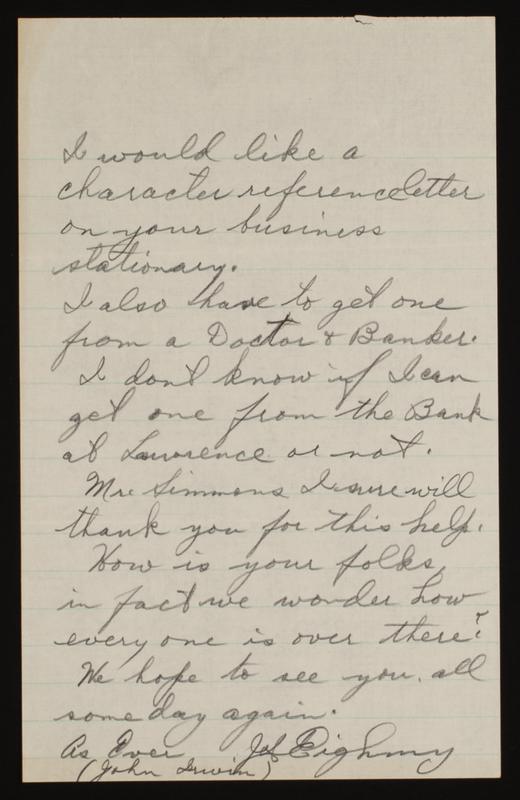 I would like a
character reference letter
on your business
stationary.
I also have to get one
from a Doctor & Banker.
I dont know if I can
get one from the Bank
at Lawrence or not.
Mr. Simmons I sure will
thank you for this help.
How is your folks,
in fact we wonder how
every one is over there?
We hope to see you all
some day again.
As Ever J.I. Eighmy
(John Irwin)